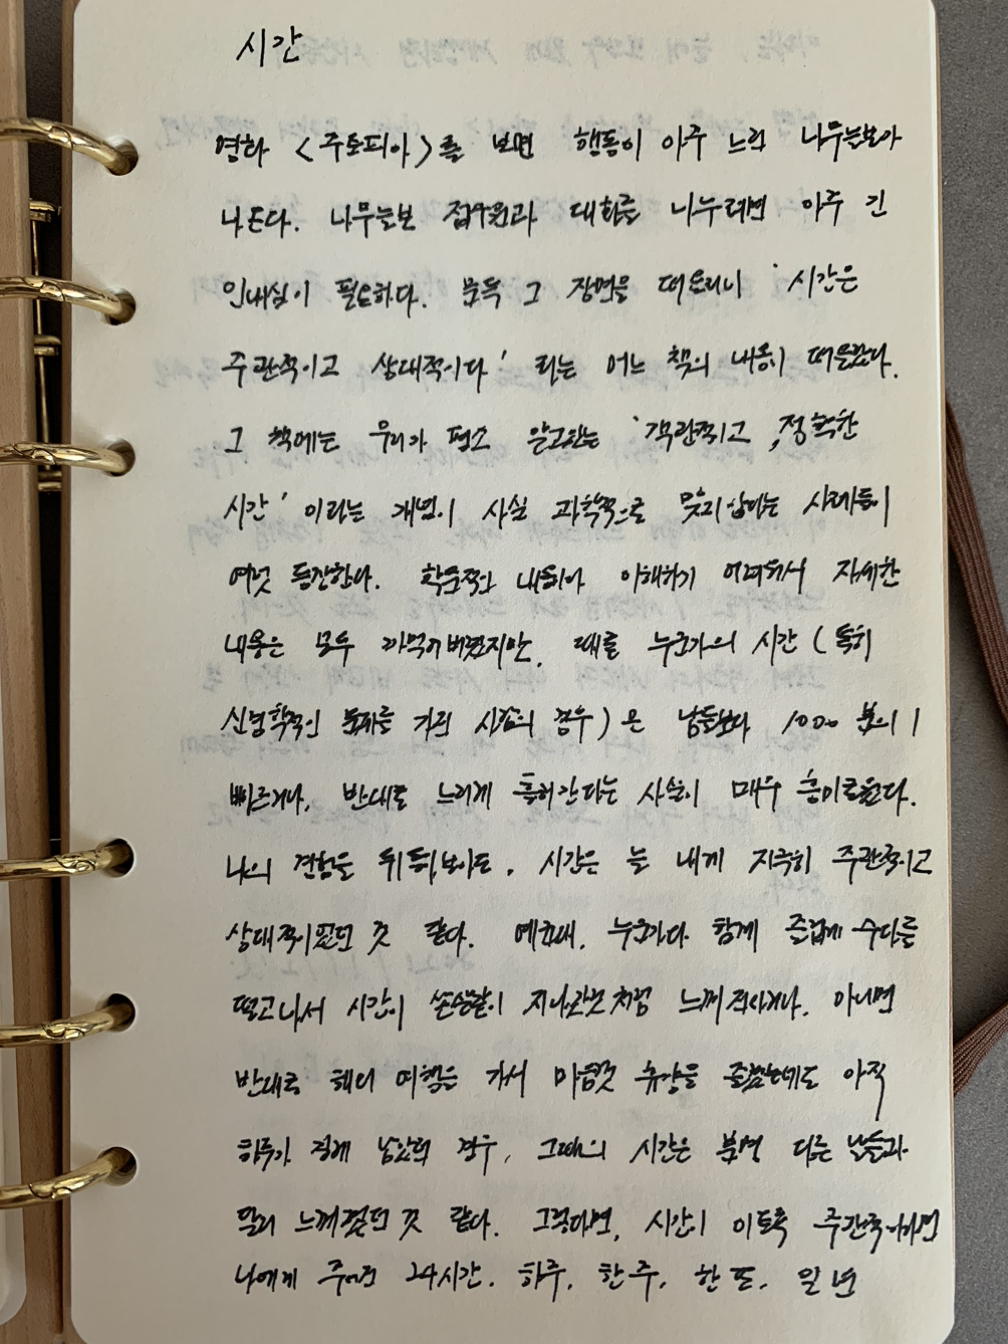 시간
영화 <주토피아>를 보면 행동이 아주 느린 나무늘보가
나온다. 나무늘보 접수원과 대화를 나누려면 아주 긴
인내심이 필요하다. 문득 그 장면을 떠올리니 '시간은
주관적이고 상대적이다' 라는 어느 책의 내용이 떠올랐다.
그 책에는 우리가 평소 알고있는 '객관적이고, 정확한
시간' 이라는 개념이 사실 과학적으로 맞지않다는 사례들이
여럿 등장한다. 학술적인 내용이라 이해하기 어려워서 자세한
내용은 모두 까먹어버렸지만, 때론 누군가의 시간 (특히
신경학적인 문제를 가진 사람의 경우)은 남들보다 1000분의 1
빠르거나, 반대로 느리게 흘러간다는 사실이 매우 흥미로웠다.
나의 경험을 뒤돌아보아도, 시간은 늘 내게 지극히 주관적이고
상대적이었던 것 같다. 예컨대, 누군가와 함께 즐겁게 수다를
떨고나서 시간이 쏜살같이 지나간것처럼 느껴져서거나, 아니면
반대로 해외 여행을 가서 마음껏 휴양을 즐겼는데도 아직
하루가 길게 남았던 경우, 그때의 시간은 분명 다른 날들과
달리 느껴졌던 것 같다. 그렇다면, 시간이 이토록 주관적이라면
나에게 주어진 24시간, 하루, 한 주, 한 달, 일 년